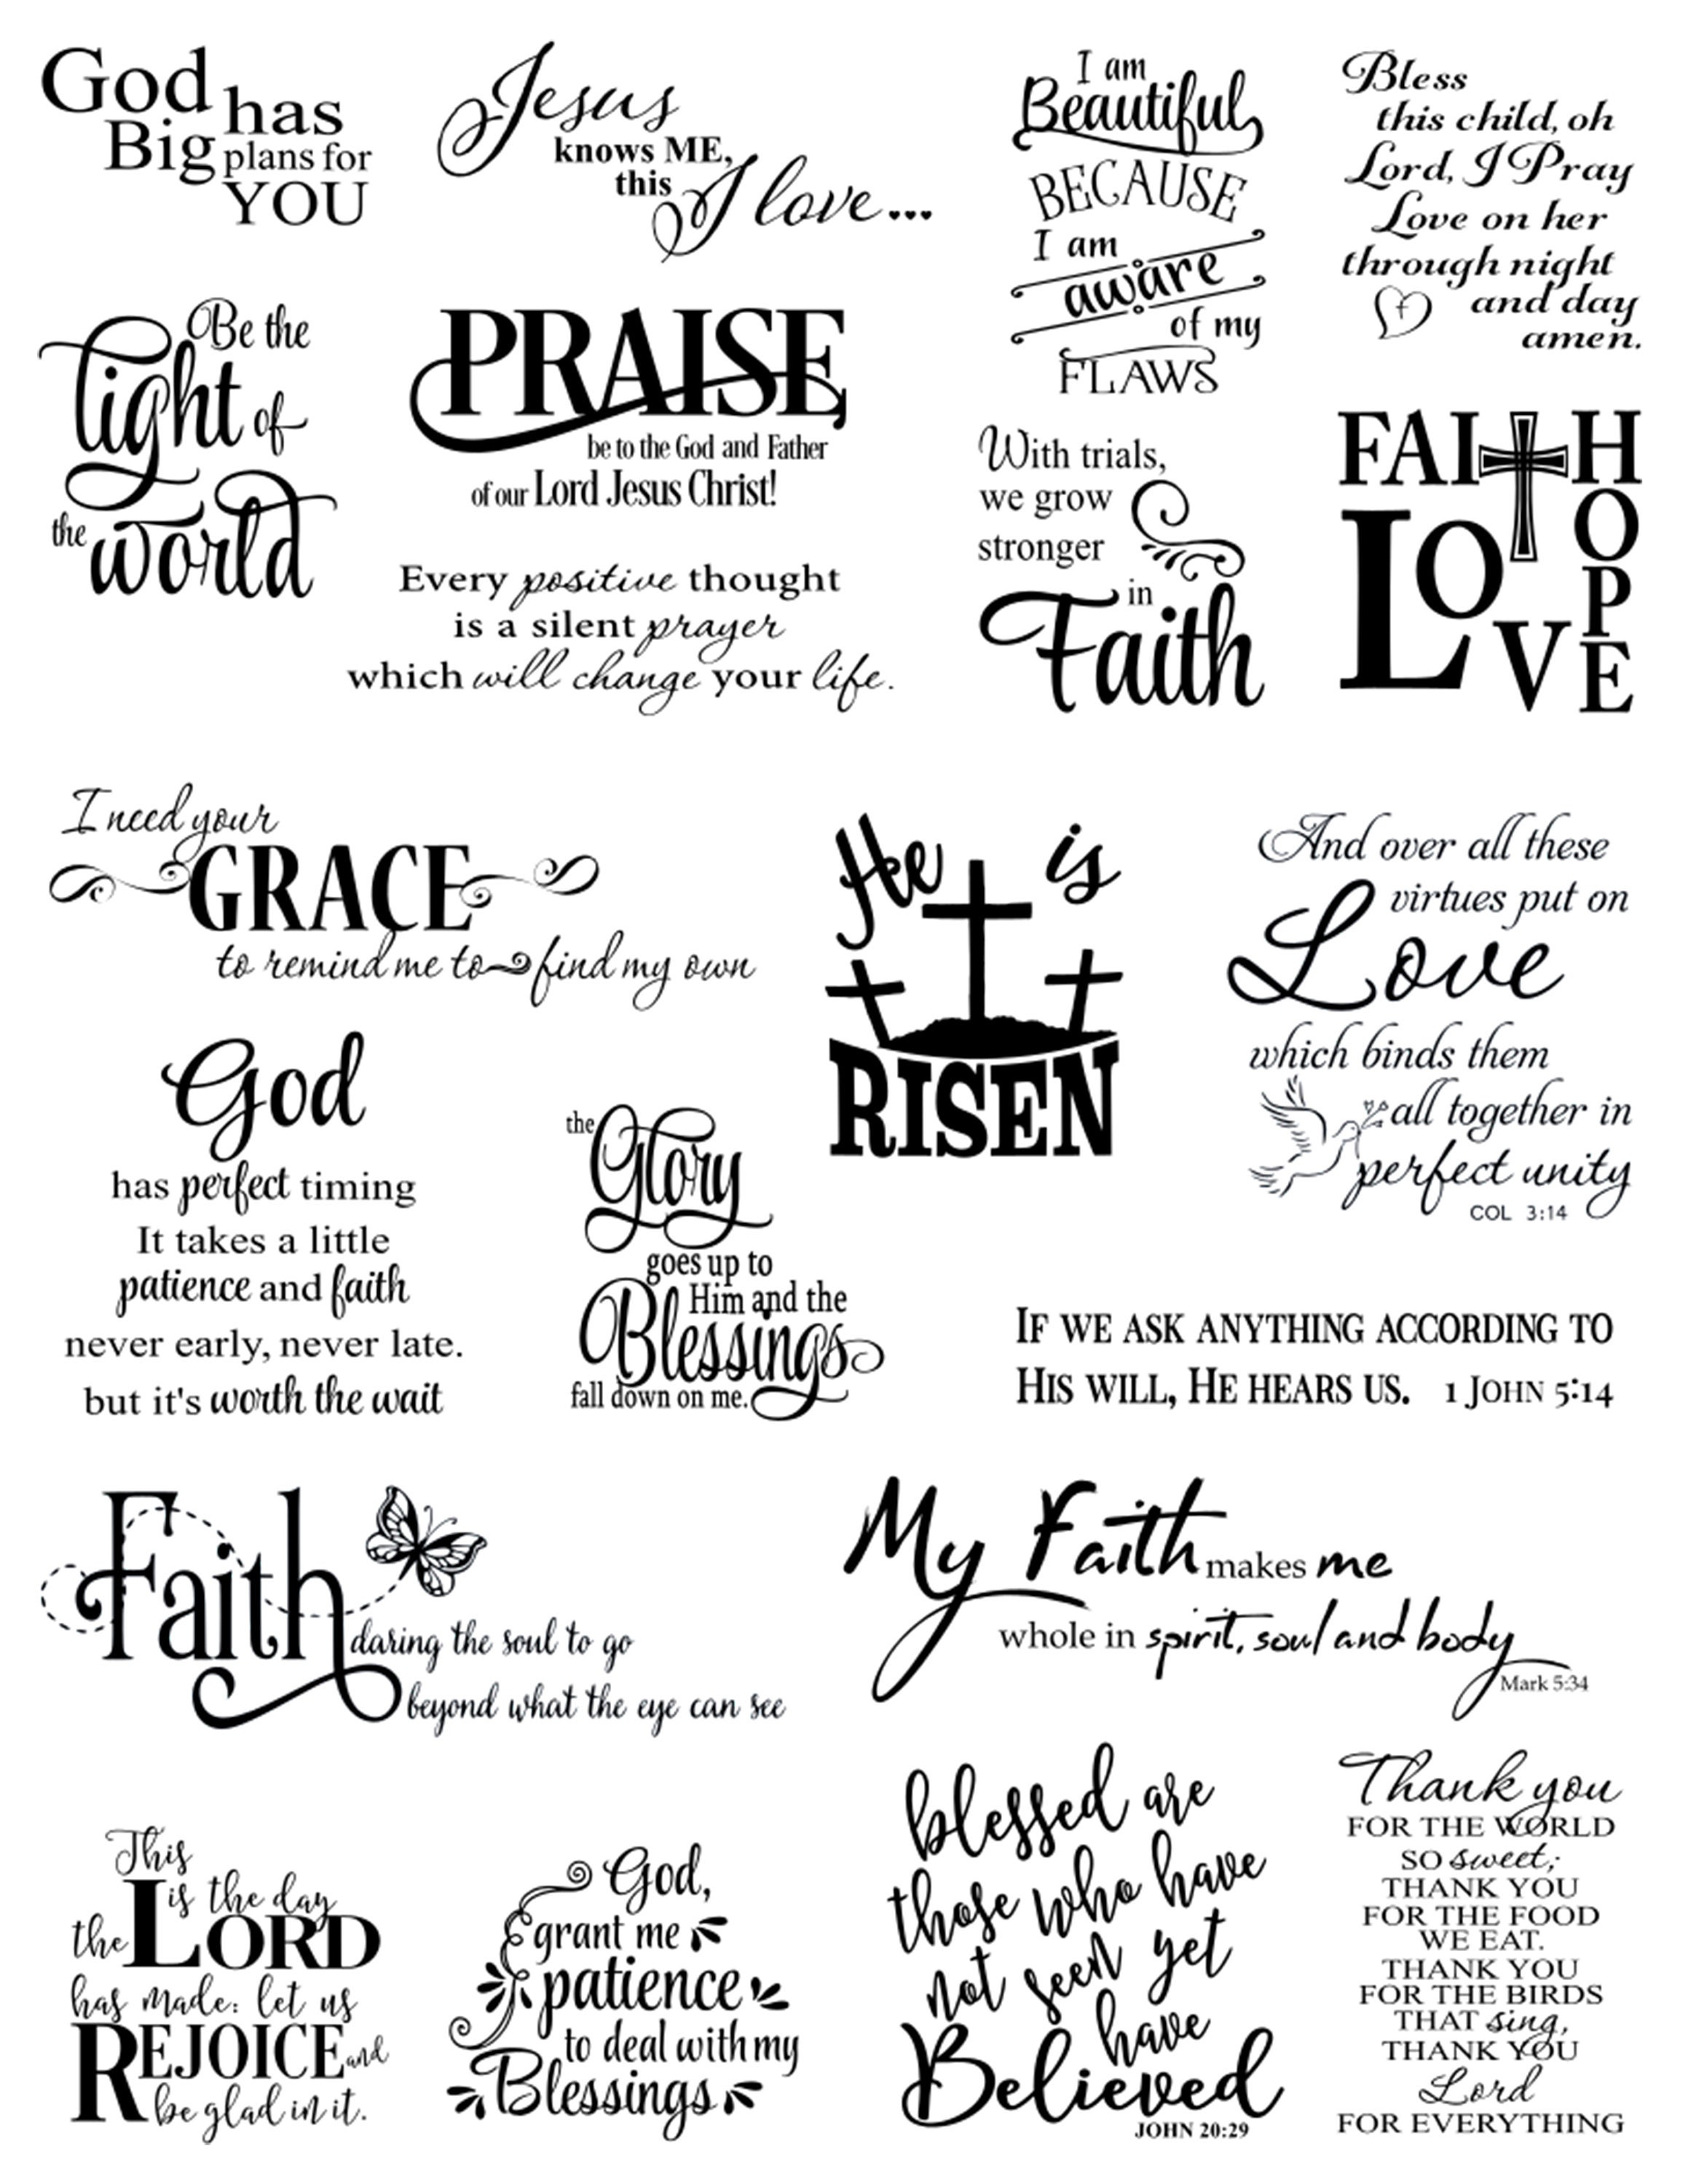 God has
Big plans for
YOU
Jesus
knows ME,
this I love...
I am
Beautiful
BECAUSE
I am
aware
of my
FLAWS
Bless
this child, oh
Lord, I Pray
Love on her
through night
and day
amen.
Be the
light of
the world
PRAISE
be to the God and Father
of our Lord Jesus Christ!
Every positive thought
is a silent prayer
which will change your life.
With trials,
we grow
stronger
in
Faith
FAITH
HOPE
LOVE
I need your
GRACE
to remind me to find my own
He is
RISEN
And over all these
virtues put on
Love
which binds them
all together in
perfect unity
COL 3:14
God
has perfect timing
It takes a little
patience and faith
never early, never late.
but it's worth the wait
the
Glory
goes up to
Him and the
Blessings
fall down on me.
IF WE ASK ANYTHING ACCORDING TO
HIS WILL, HE HEARS US. 1 JOHN 5:14
Faith
daring the soul to go
beyond what the eye can see
My Faith makes me
whole in spirit, soul and body
Mark 5:34
This
is the day
the LORD
has made: let us
REJOICE and
be glad in it.
God,
grant me
patience
to deal with my
Blessings
blessed are
those who have
not seen yet
have
Believed
JOHN 20:29
Thank you
FOR THE WORLD
SO sweet;
THANK YOU
FOR THE FOOD
WE EAT.
THANK YOU
FOR THE BIRDS
THAT sing,
THANK YOU
Lord
FOR EVERYTHING